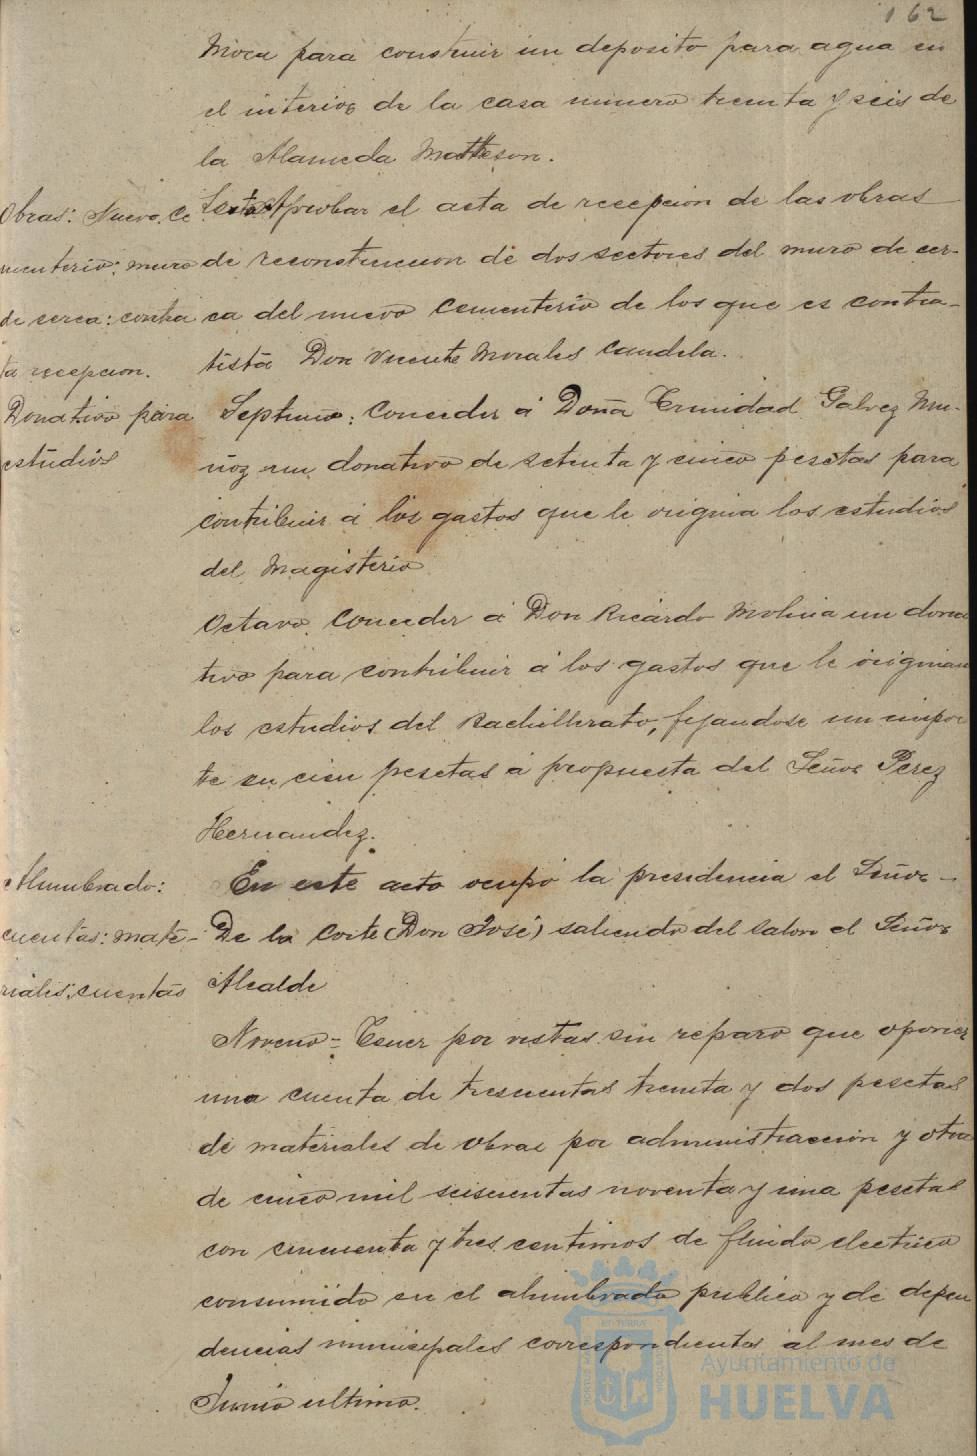 162
Moca para construir un deposito para agua en
el interior de la casa numero treinta y seis de
la Alameda Mattheson.
Obras: Nuevo Ce
menterio: muro
de cerca: contra
ta recepcion.
Sexto Aprobar el acta de recepcion de las obras
de reconstruccion de dos sectores del muro de cer-
ca del nuevo Cementerio de los que es contra-
tista Don Vicente Morales Candela.
Donativo para
estudios
Septimo: Conceder á Doña Trinidad Galvez Mu-
ñoz un donativo de setenta y cinco pesetas para
contribuir á los gastos que le origina los estudios
del Magisterio
Octavo. Conceder á Don Ricardo Molina un dona
tivo para contribuir á los gastos que le originan
los estudios del Bachillerato, fijandose un impor
te en cien pesetas á propuesta del Señor Perez
Hernandez.
Alumbrado:
cuentas: mate-
riales: cuentas
En este acto ocupó la presidencia el Señor -
De la Corte (Don José) saliendo del salon el Señor
Alcalde
Noveno = Tener por vistas sin reparo que oponer
una cuenta de trescientas treinta y dos pesetas
de materiales de obras por administracción y otra
de cinco mil seiscientas noventa y una pesetas
con cincuenta y tres centimos de fluido electrico
consumido en el alumbrado publico y de depen
dencias municipales correspondientes al mes de
Junio ultimo.
Ayuntamiento de
HUELVA